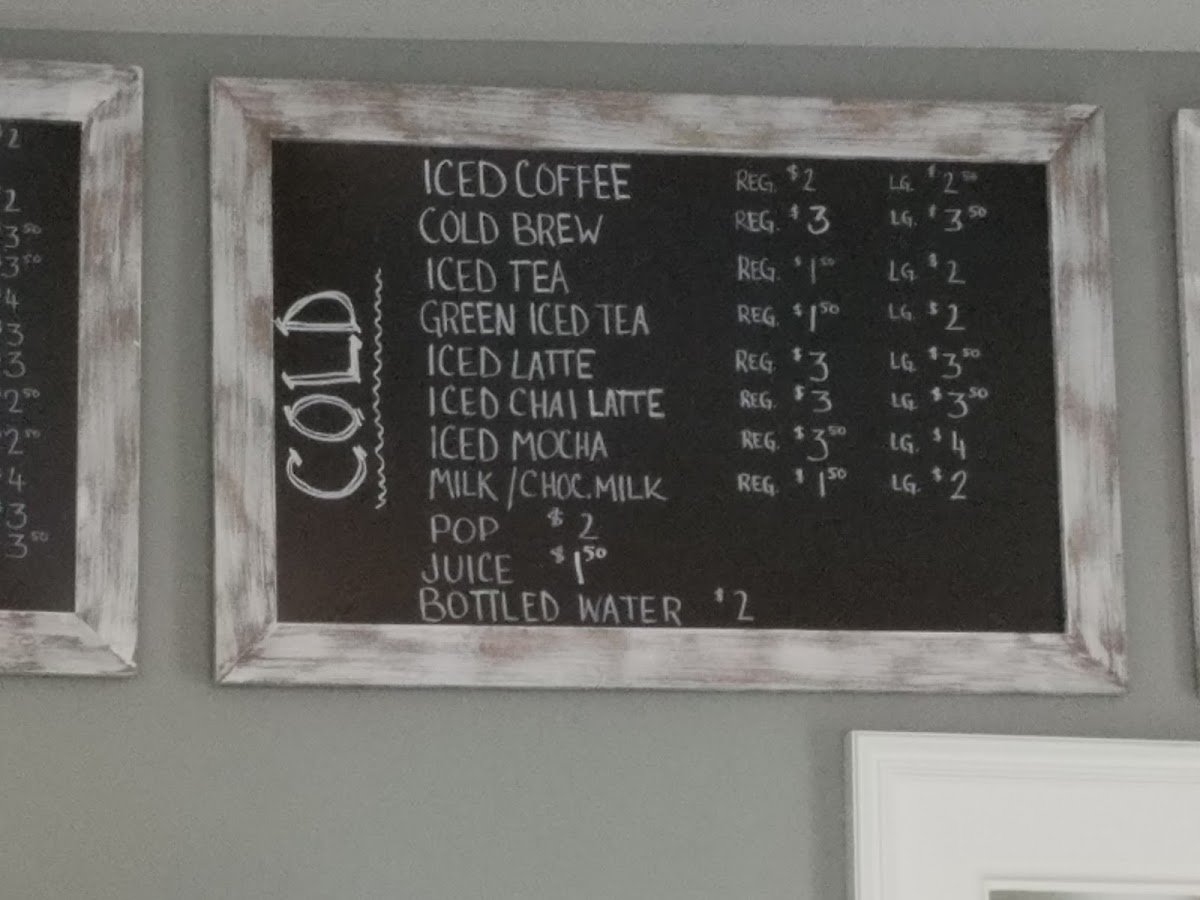 $2
$2
$3.50
$3.50
$4
$3
$3
$2.50
$2.50
$4
$3
$3.50
COLD
ICED COFFEE REG. $2 LG. $2.50
COLD BREW REG. $3 LG. $3.50
ICED TEA REG. $1.50 LG. $2
GREEN ICED TEA REG. $1.50 LG. $2
ICED LATTE REG. $3 LG. $3.50
ICED CHAI LATTE REG. $3 LG. $3.50
ICED MOCHA REG. $3.50 LG. $4
MILK/CHOC. MILK REG. $1.50 LG. $2
POP $2
JUICE $1.50
BOTTLED WATER $2